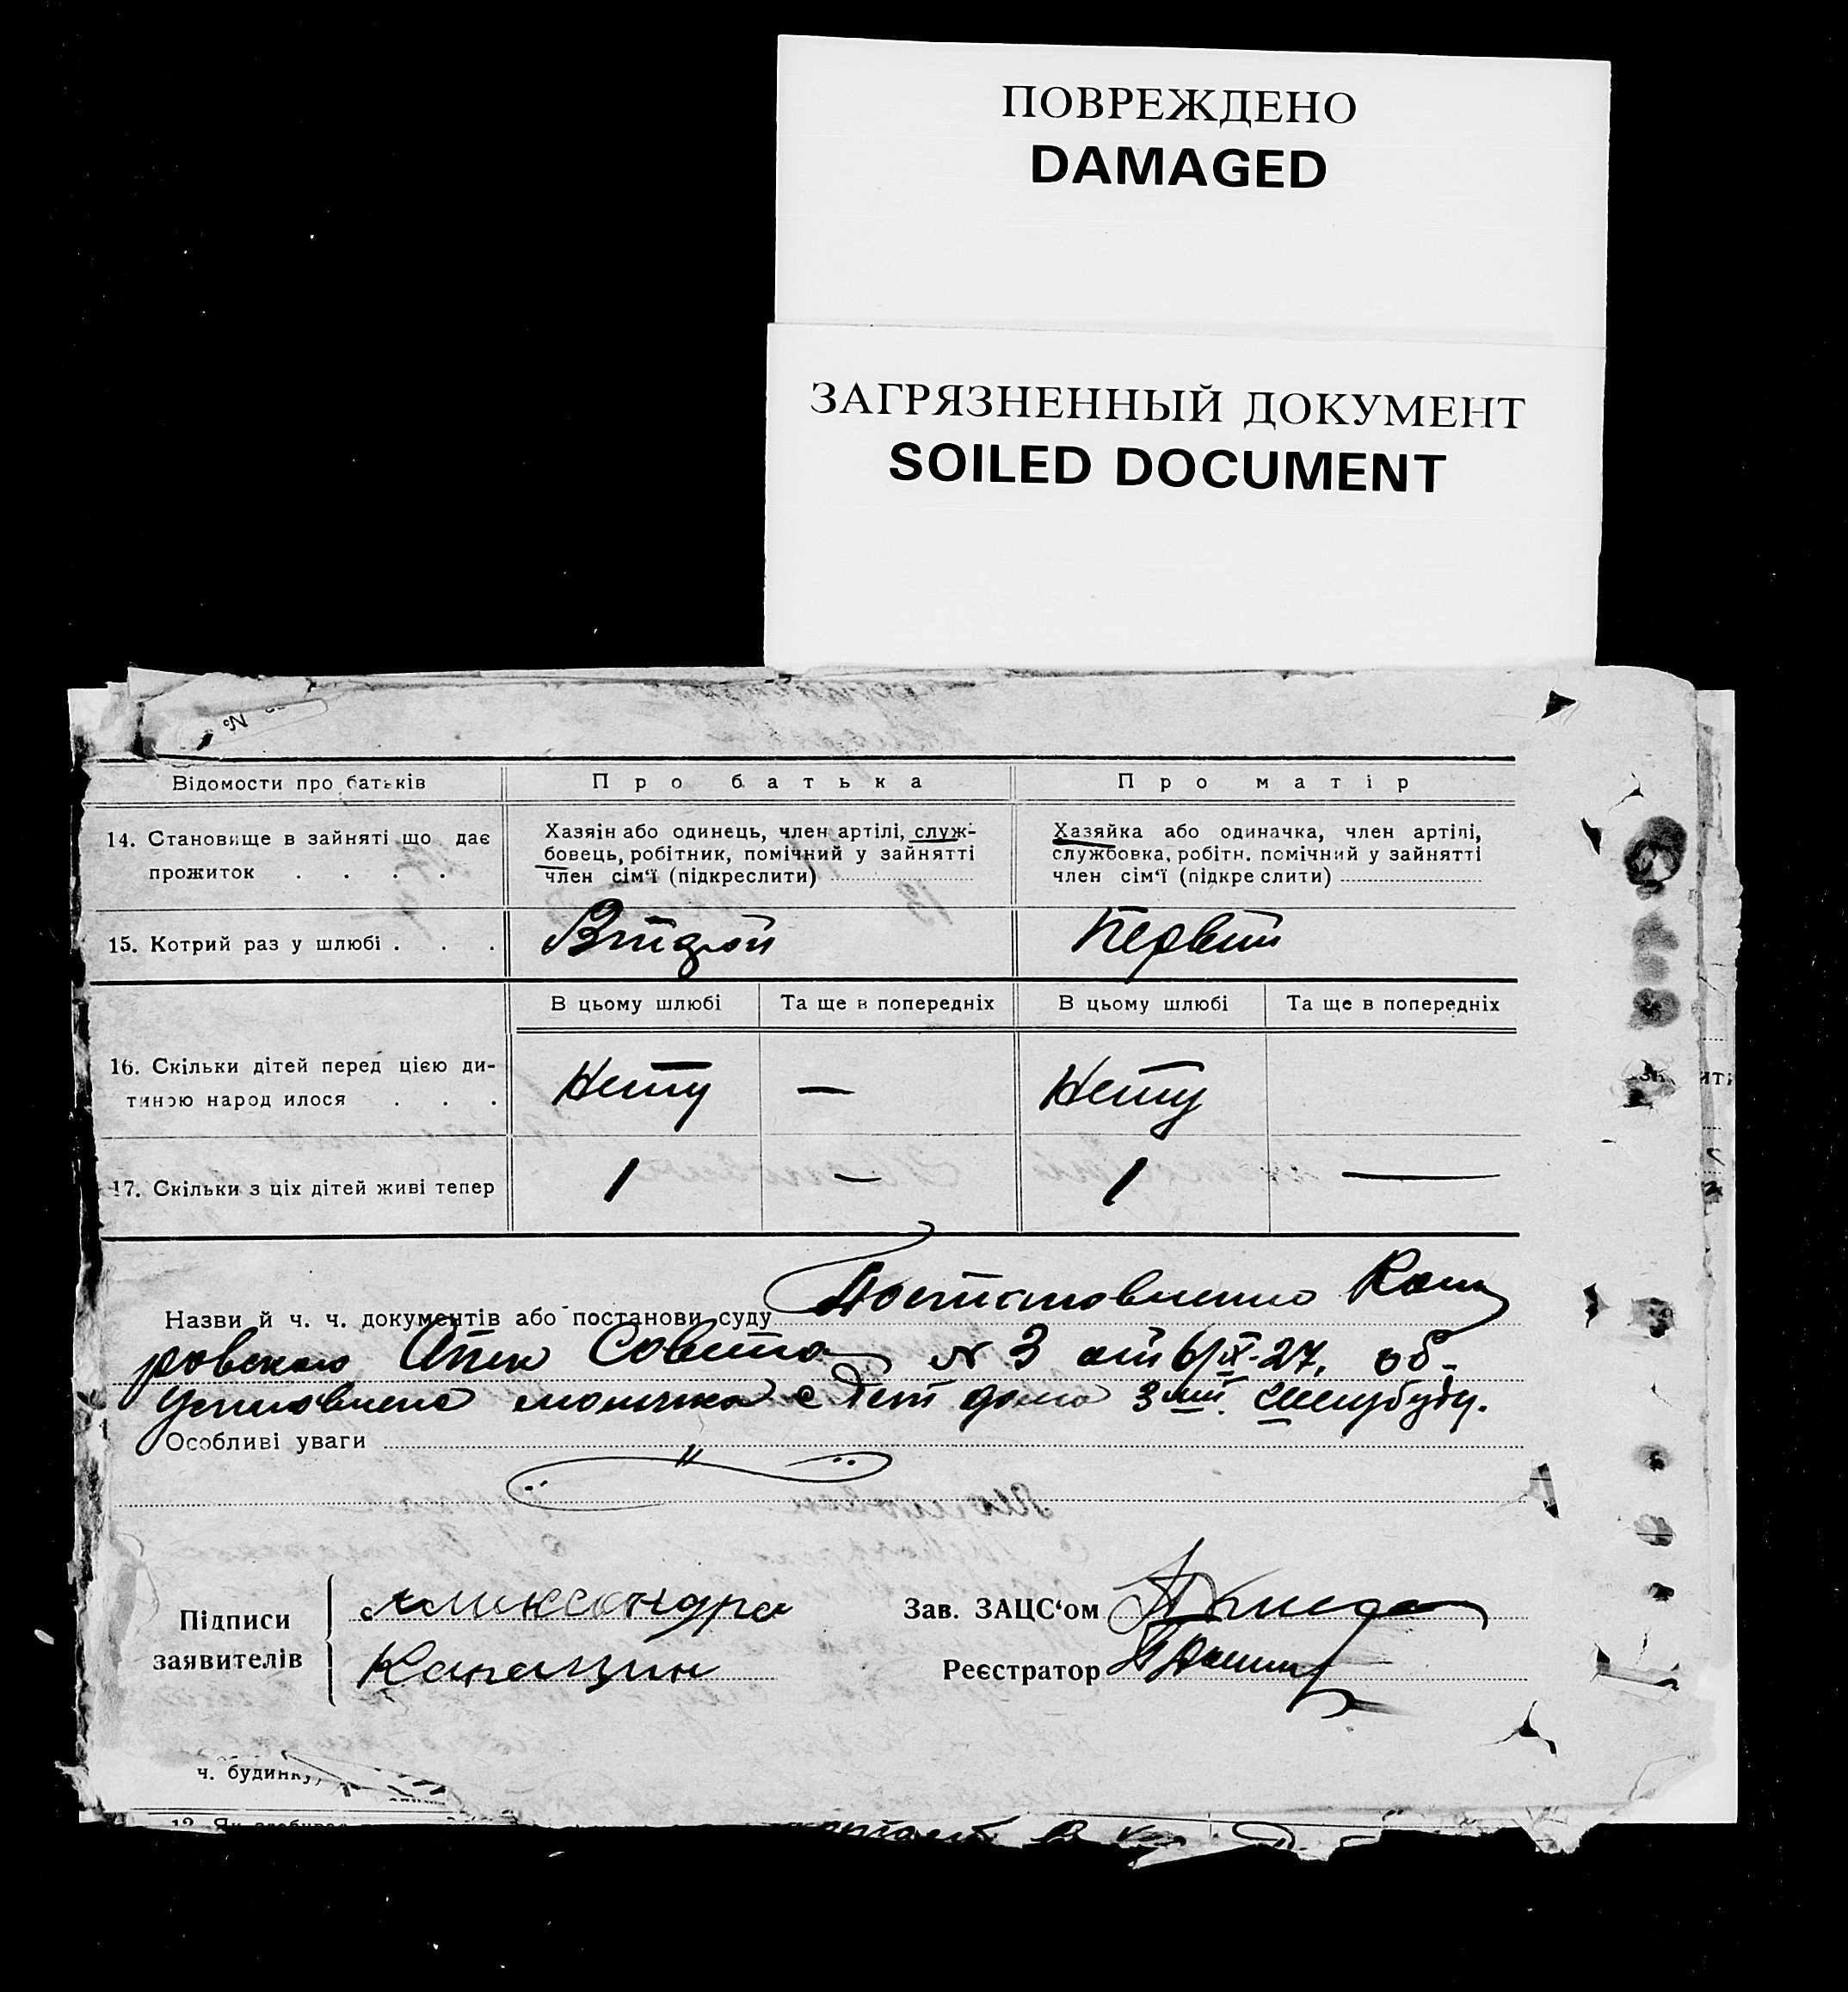 ПОВРЕЖДЕНО
DAMAGED
ЗАГРЯЗНЕННЫЙ ДОКУМЕНТ
SOILED DOCUMENT
№
Відомости про батьків
Про батька
Про матір
14. Становище в зайняті що дає
прожиток . . . .
Хазяїн або одинець, член артілі, служ-
бовець, робітник, помічний у зайнятті
член сім'ї (підкреслити)
Хазяйка або одиначка, член артілі,
службовка, робітн. помічний у зайнятті
член сім'ї (підкреслити)
15. Котрий раз у шлюбі . . .
Второй
Первый
В цьому шлюбі
Та ще в попередніх
В цьому шлюбі
Та ще в попередніх
16. Скільки дітей перед цією ди-
тиною народилося . . .
Нету
—
Нету
17. Скільки з ціх дітей живі тепер
1
—
1
—
Назви й ч. ч. документів або постанови суду Постановление
ровского Опек Совета № 3 от 6/X-27, об
дома
Особливі уваги
Підписи
заявителів
Александра
Зав. ЗАЦС'ом
Реєстратор
ч. будинку,